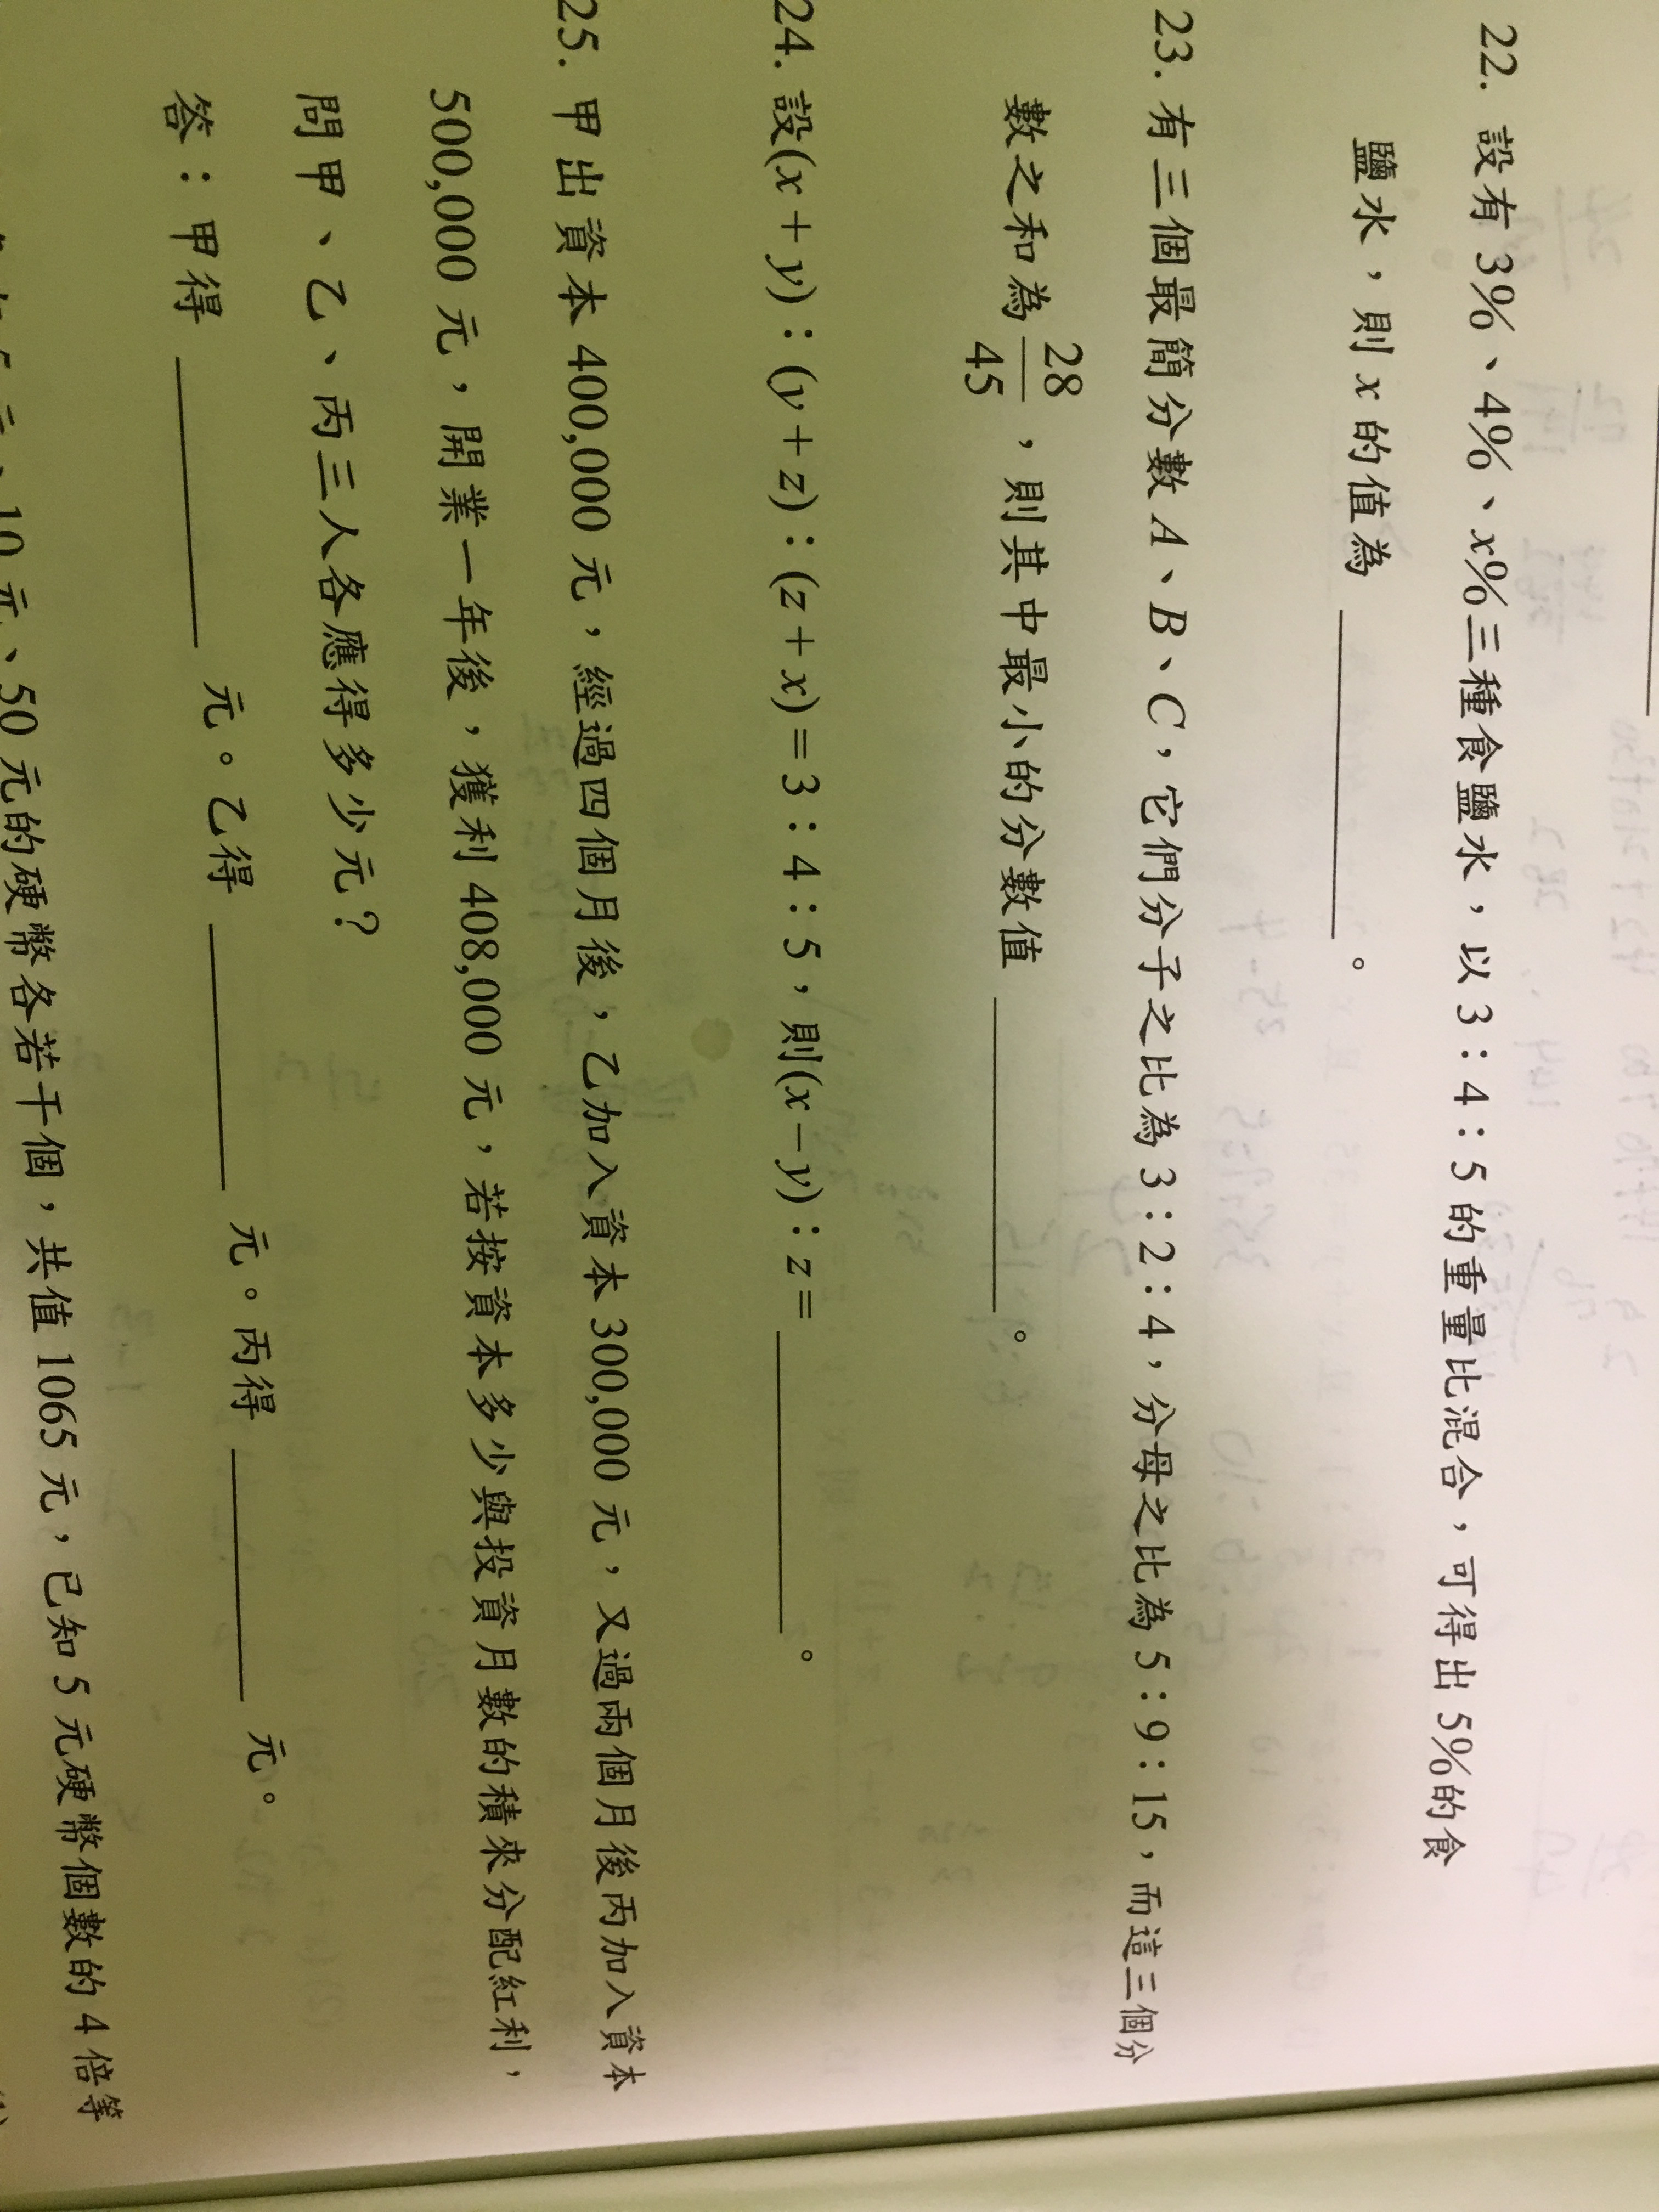 22. 設有 3%、4%、x%三種食鹽水，以 3：4：5 的重量比混合，可得出 5%的食
鹽水，則 x 的值為 ________。
23. 有三個最簡分數 A、B、C，它們分子之比為 3：2：4，分母之比為 5：9：15，而這三個分
數之和為 28/45，則其中最小的分數值 ________。
24. 設(x＋y)：(y＋z)：(z＋x)＝3：4：5，則(x－y)：z＝ ________。
25. 甲出資本 400,000 元，經過四個月後，乙加入資本 300,000 元，又過兩個月後丙加入資本
500,000 元，開業一年後，獲利 408,000 元，若按資本多少與投資月數的積來分配紅利，
問甲、乙、丙三人各應得多少元？
答：甲得 ________ 元。乙得 ________ 元。丙得 ________ 元。
5 元、10 元、50 元的硬幣各若干個，共值 1065 元，已知 5 元硬幣個數的 4 倍等